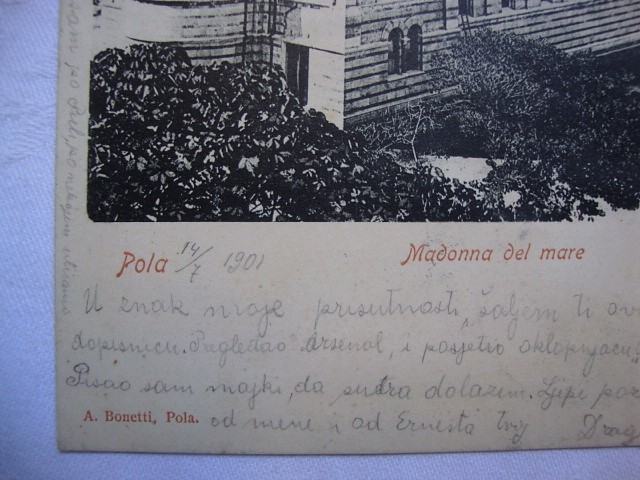 Pola 14/7 1901 Madonna del mare
U znak moje prisutnosti, šaljem ti ov
dopisnicu. Pregledao Arsenal, i posjetio oklopnjacu
Pisao sam majki, da sutra dolazim. Ljepi poz
A. Bonetti, Pola. od mene i od Ernesta tvoj Drag